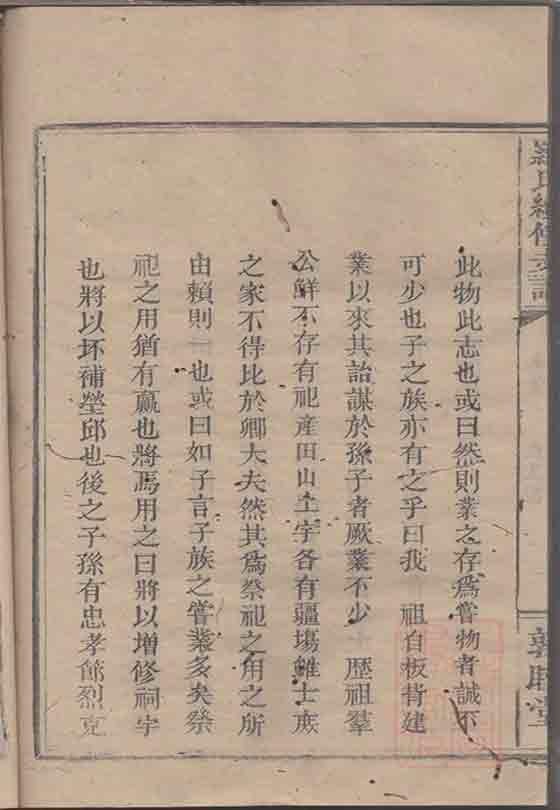 羅氏續修支譜
敦睦堂
此物此志也或曰然則業之存爲嘗物者誠不
可少也子之族亦有之乎曰我 祖自板背建
業以來其詒謀於孫子者厥業不少 歷祖羣
公鮮不存有祀産田山土字各有疆塲雖士庶
之家不得比於卿大夫然其爲祭祀之用之所
由賴則一也或曰如子言子族之嘗業多矣祭
祀之用猶有贏也將焉用之曰將以增修祠宇
也將以坏補塋邱也後之子孫有忠孝節烈克